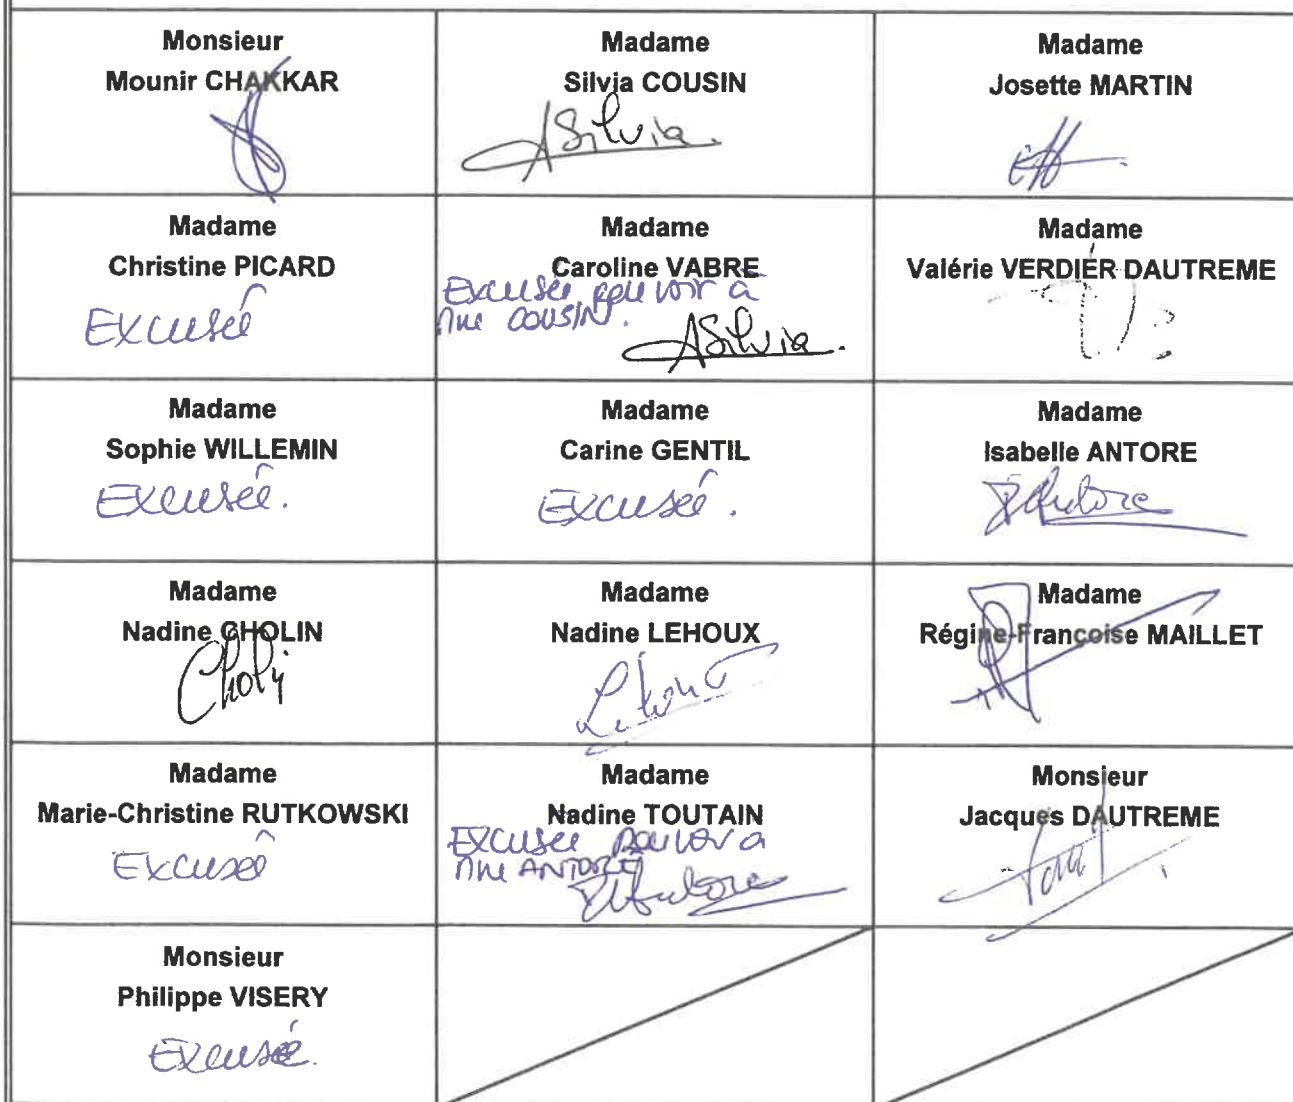 Monsieur
Mounir CHAKKAR
Madame
Silvia COUSIN
Silvia.
Madame
Josette MARTIN
Madame
Christine PICARD
Excusée
Madame
Caroline VABRE
Excusée pouvoir à
Mme COUSIN.
Silvia.
Madame
Valérie VERDIER DAUTREME
Madame
Sophie WILLEMIN
Excusée.
Madame
Carine GENTIL
Excusée.
Madame
Isabelle ANTORE
Antore
Madame
Nadine CHOLIN
Madame
Nadine LEHOUX
Madame
Régine-Françoise MAILLET
Madame
Marie-Christine RUTKOWSKI
Excusée
Madame
Nadine TOUTAIN
Excusée pouvoir à
Mme ANTORE
Antore
Monsieur
Jacques DAUTREME
Monsieur
Philippe VISERY
Excusée.